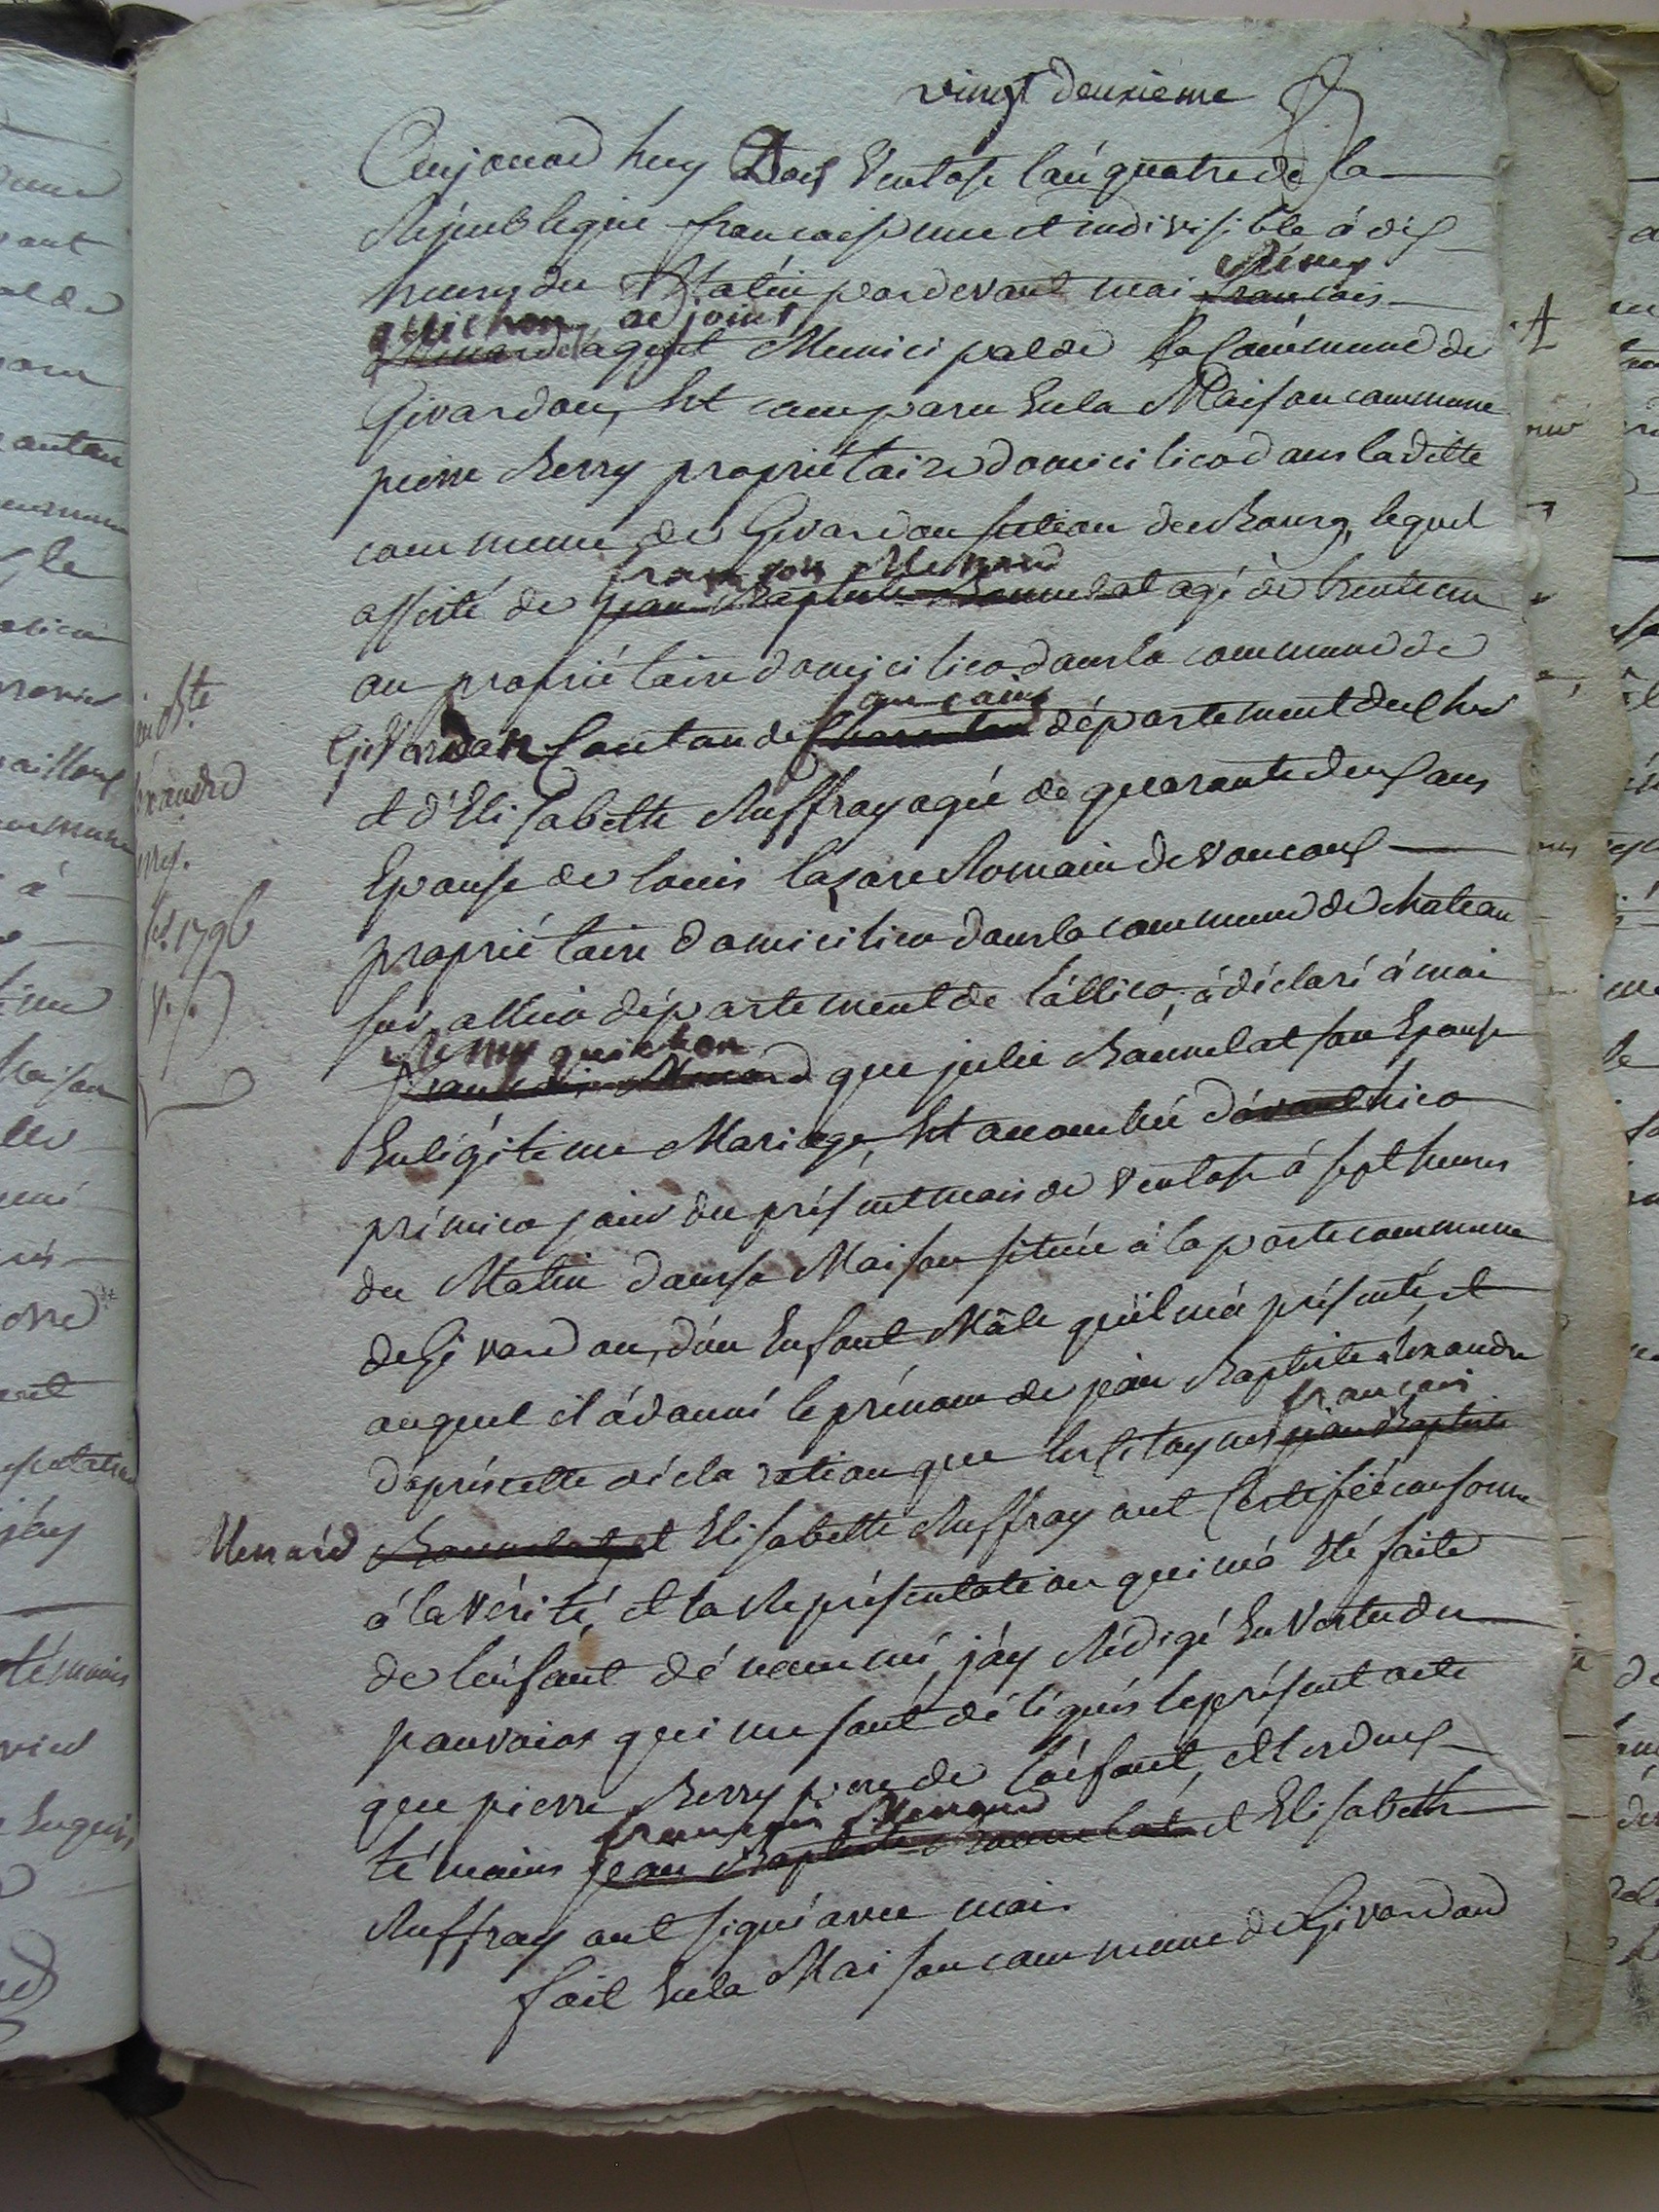 vingt deuxième
Aujourd huy Trois Ventose l'an quatre de la
République française une et indivisible à dix
heures du Matin pardevant moi françois Rémy
Menard guichon adjoint agent Municipal de la Commune de
Givardon, Est comparu En la Maison commune
pierre Berry propriétaire domicilier dans la ditte
commune de Givardon section du Bourg, lequel
assisté de jean Baptiste Bonnelat françois Menard agé de trente un
an propriétaire domicilier dans la commune de
Givardon Canton de Charenton sancoins département du Cher
et d'Elisabette Auffray agée de quarante deux ans
Epouse de louis lazare Romain de Voucoux
propriétaire domicilier dans la commune de chateau
sur allier département de l'allier, à déclaré à moi
françois Menard Remy guichon que julie Bonnelat son Epouse
En légitime Mariage, Est accouchée d'avant hier
prémier jour du présent mois de Ventose à sept heures
du Matin dans sa Maison située à la porte commune
de Givardon, d'un Enfant Mâle qu'il m'a présenté, et
auquel il à donné le prénom de jean Baptiste aléxandre
d'aprés cette déclaration que les Citoyens jean Baptiste françois
Menard Bonnelat, et Elisabette Auffray ont Certifiée conforme
à la Vérité, et la Représentation qui m'a Eté faite
de l'enfant dénommé, j'ay Rédigé En Vertu du
pouvoirs qui me sont délégués le présent acte
que pierre Berry pere de l'enfant, et les deux
témoins jean Baptiste Bonnelat françois Menard et Elisabeth
Auffray ont signé avec moi.
fait En la Maison commune de Givardon
Bste
exandre
rry.
1796